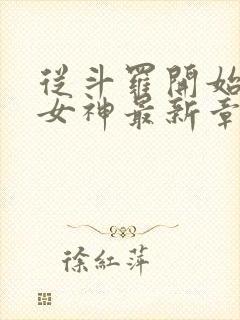 從斗羅開始
女神最新章
徐紅萍